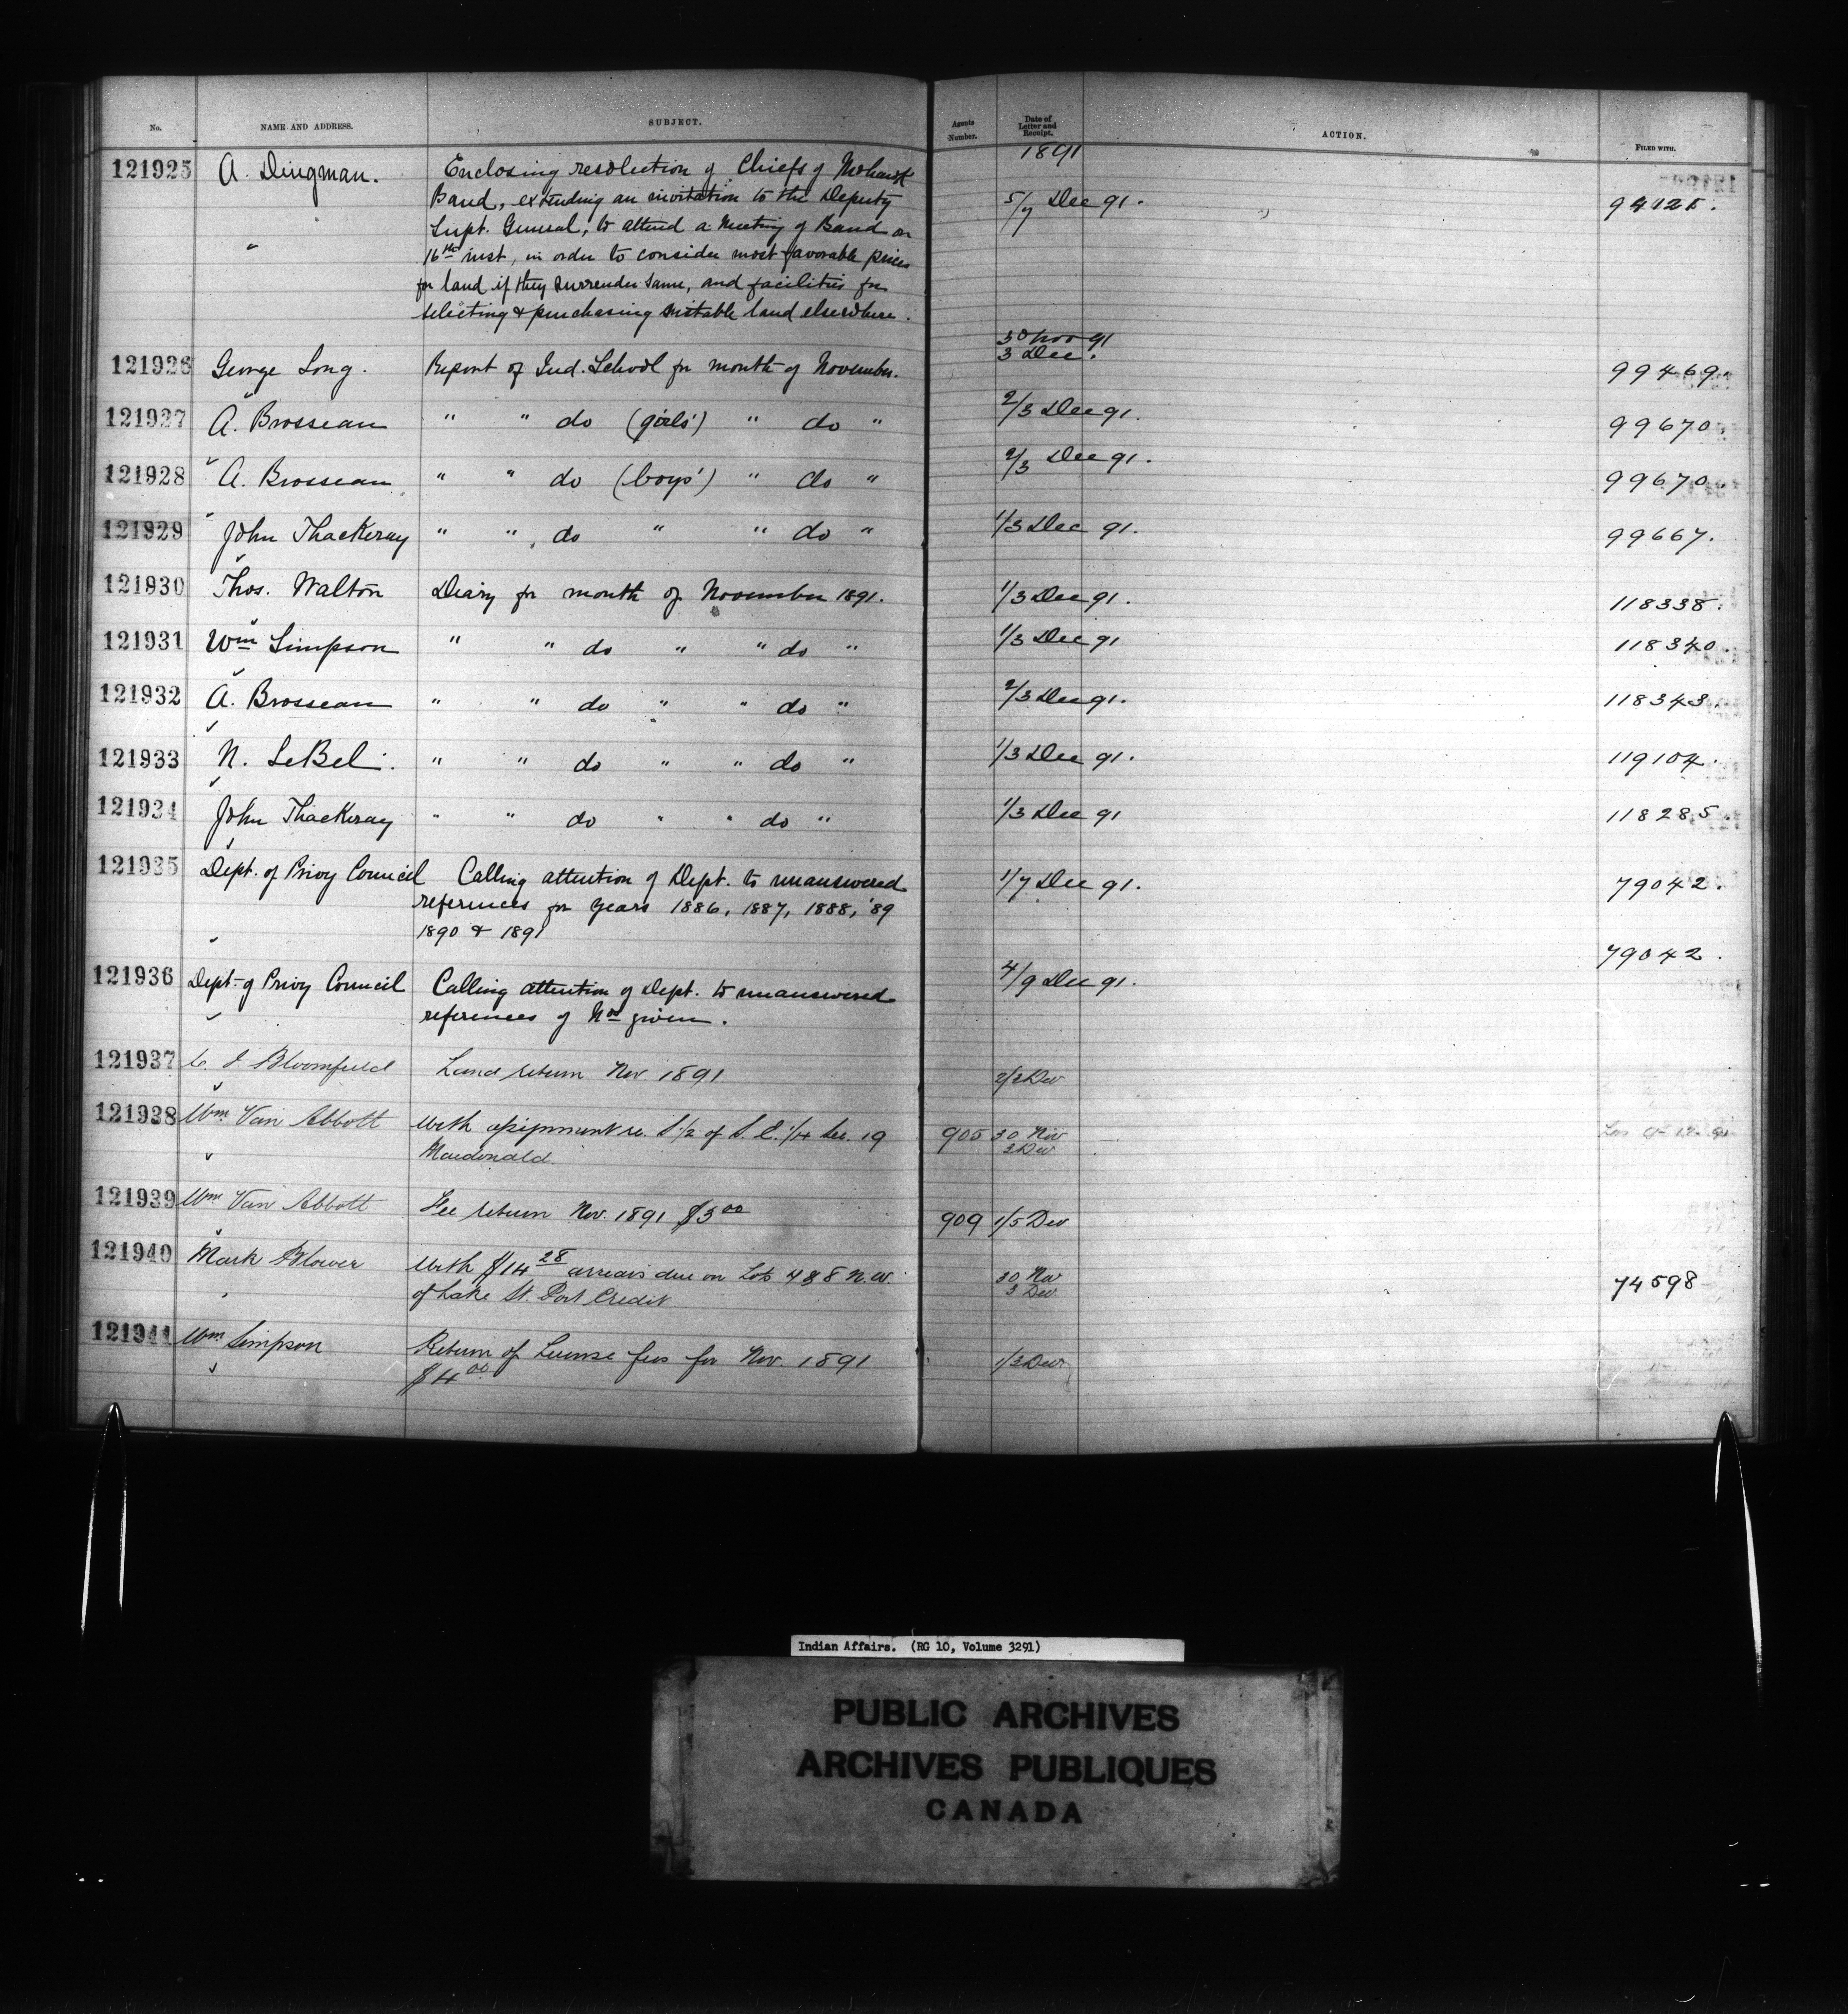 No. NAME AND ADDRESS. SUBJECT. Agents Number. Date of Letter and Receipt. ACTION. FILED WITH.
1891
121925 A. Dingman. Enclosing resolution of Chiefs of Mohawk
Band, extending an invitation to the Deputy 5/7 Dec 91. 94125.
Supt. General, to attend a Meeting of Band on
16th inst, in order to consider most favorable prices
for land if they surrender same, and facilities for
selecting & purchasing suitable land elsewhere.
30 Nov 91
121926 George Long. Report of Ind. School for month of November. 3 Dec. 99469.
121927 A. Brosseau " " do (girls') " do " 2/3 Dec 91. 99670.
121928 A. Brosseau " " do (boys') " do " 2/3 Dec 91. 99670.
121929 John Thackeray " " do " " do " 1/3 Dec 91. 99667.
121930 Thos. Walton Diary for month of November 1891. 1/3 Dec 91. 118338.
121931 Wm Simpson " " do " " do " 1/3 Dec 91 118340.
121932 A. Brosseau " " do " " do " 2/3 Dec 91. 118343.
121933 N. LeBel. " " do " " do " 1/3 Dec 91. 119104.
121934 John Thackeray " " do " " do " 1/3 Dec 91 118285.
121935 Dept. of Privy Council Calling attention of Dept. to unanswered 1/7 Dec 91. 79042.
references for years 1886, 1887, 1888, '89
1890 & 1891
79042.
121936 Dept. of Privy Council Calling attention of Dept. to unanswered 4/9 Dec 91.
references of Nos given.
121937 C. J. Bloomfield Land return Nov. 1891 2/3 Dec
121938 Wm Van Abbott With assignment re. S 1/2 of S. E. 1/4 Sec. 19 905 30 Nov
Macdonald. 3 Dec
121939 Wm Van Abbott Fee return Nov. 1891 $3 00 909 1/5 Dec
121940 Mark Blower With $14 28 arrears due on Lots 4 & 8 N.W. 30 Nov 74598
of Lake St. Port Credit 3 Dec.
121941 Wm Simpson Return of License fees for Nov. 1891 1/3 Dec
$4 00
Indian Affairs. (RG 10, Volume 3291)
PUBLIC ARCHIVES
ARCHIVES PUBLIQUES
CANADA